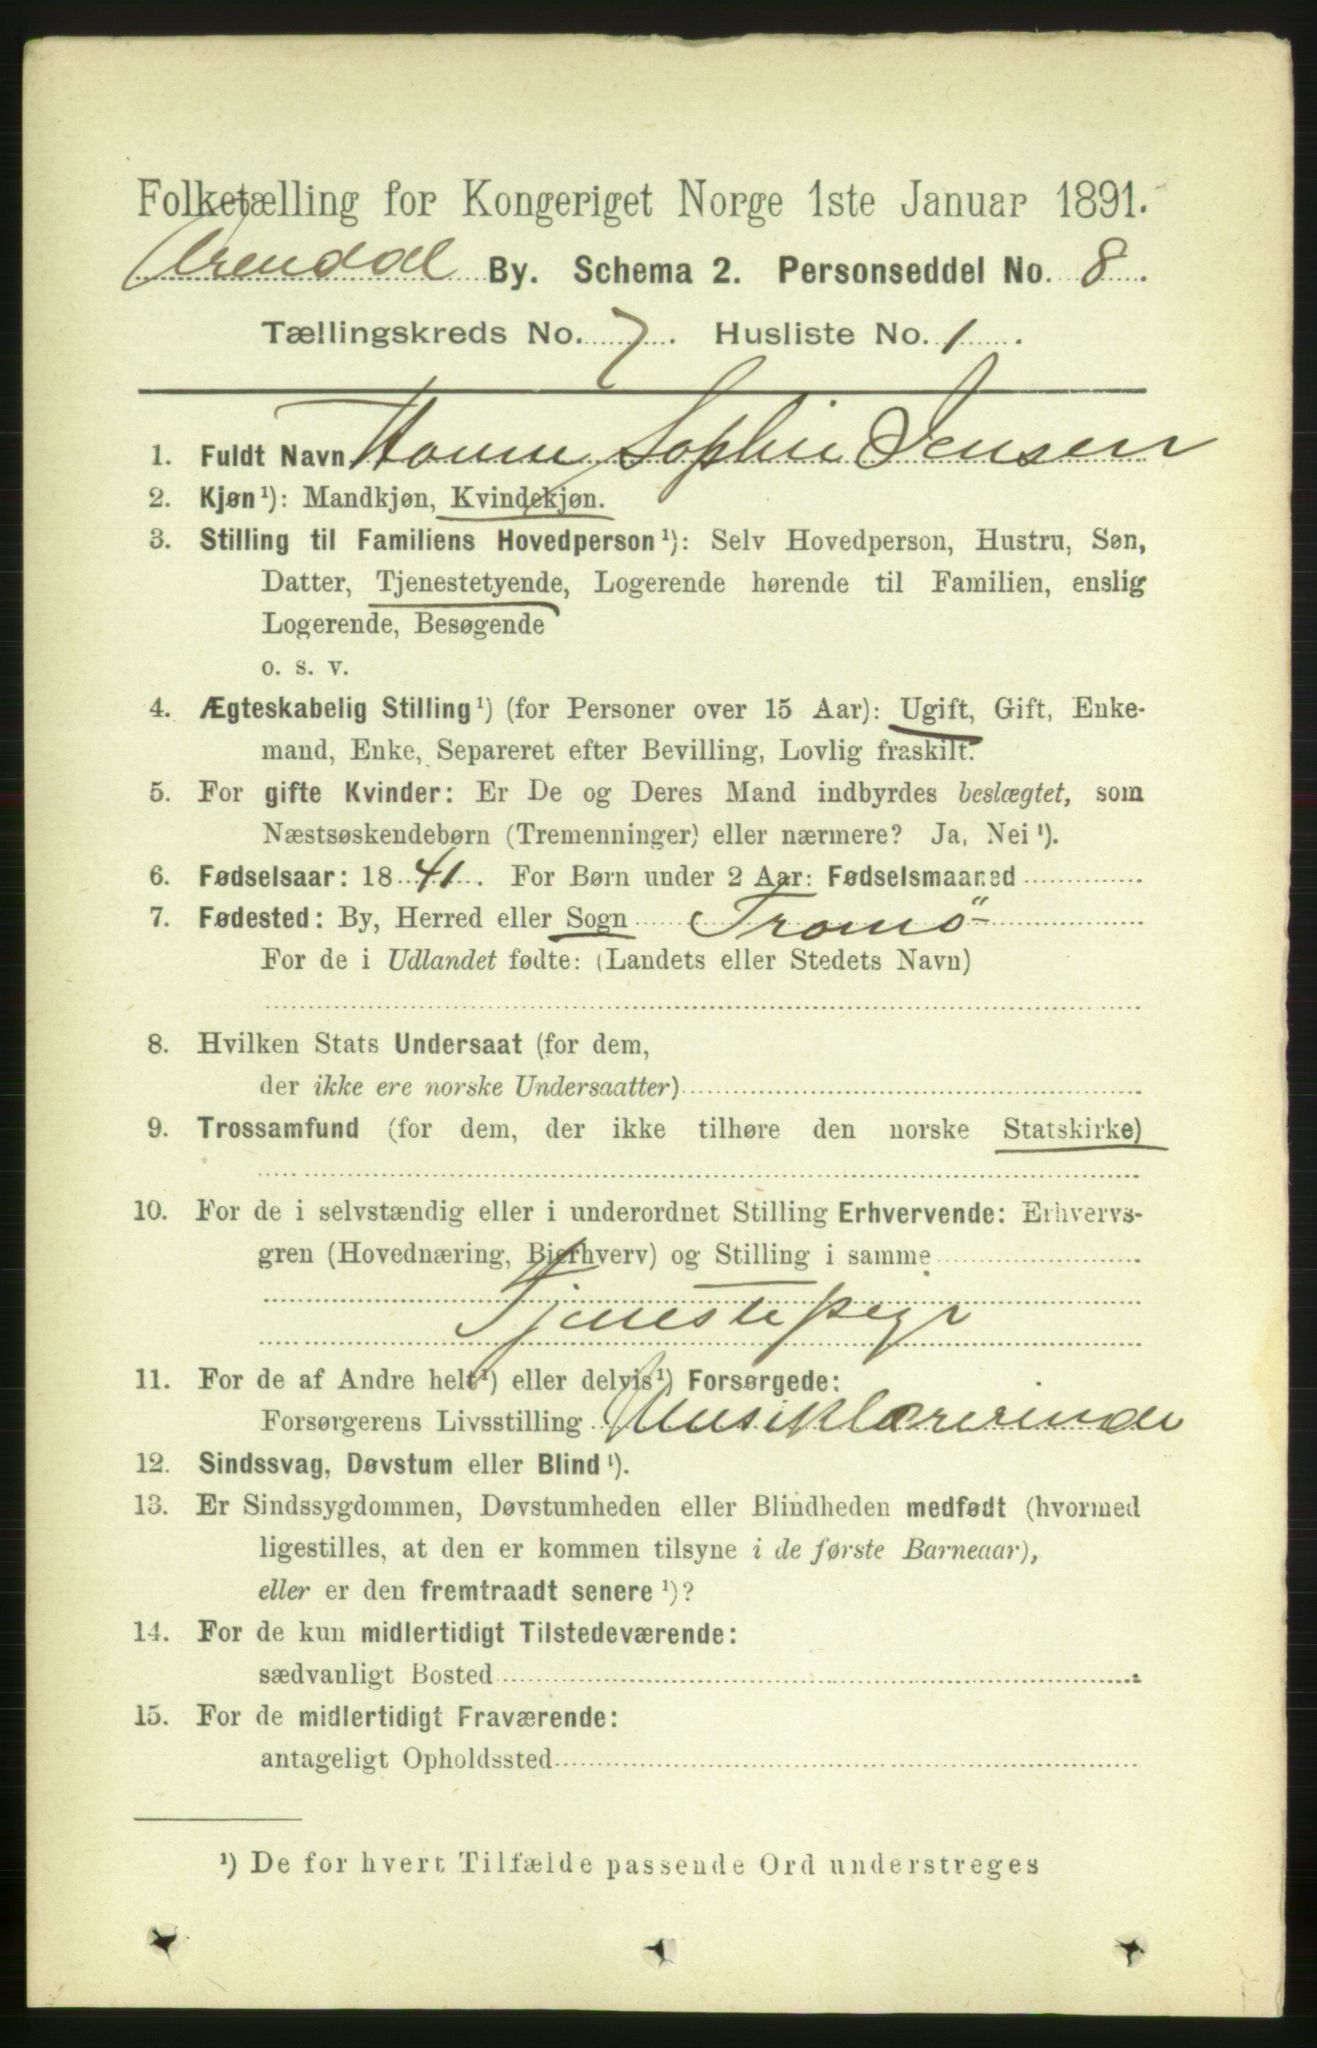 Folketælling for Kongeriget Norge 1ste Januar 1891.
Arendal By. Schema 2. Personseddel No. 8.
Tællingskreds No. 7. Husliste No. 1.
1. Fuldt Navn Hanne Sophie Jensen
2. Kjøn¹): Mandkjøn, Kvindekjøn.
3. Stilling til Familiens Hovedperson¹): Selv Hovedperson, Hustru, Søn,
Datter, Tjenestetyende, Logerende hørende til Familien, enslig
Logerende, Besøgende
o. s. v.
4. Ægteskabelig Stilling¹) (for Personer over 15 Aar): Ugift, Gift, Enke-
mand, Enke, Separeret efter Bevilling, Lovlig fraskilt.
5. For gifte Kvinder: Er De og Deres Mand indbyrdes beslægtet, som
Næstsøskendebørn (Tremenninger) eller nærmere? Ja, Nei¹).
6. Fødselsaar: 1841. For Børn under 2 Aar: Fødselsmaaned
7. Fødested: By, Herred eller Sogn Tromö
For de i Udlandet fødte: (Landets eller Stedets Navn)
8. Hvilken Stats Undersaat (for dem,
der ikke ere norske Undersaatter)
9. Trossamfund (for dem, der ikke tilhøre den norske Statskirke)
10. For de i selvstændig eller i underordnet Stilling Erhvervende: Erhvervs-
gren (Hovednæring, Bierhverv) og Stilling i samme
Tjenestepige
11. For de af Andre helt¹) eller delvis¹) Forsørgede:
Forsørgerens Livsstilling Musiklærerinde
12. Sindssvag, Døvstum eller Blind¹).
13. Er Sindssygdommen, Døvstumheden eller Blindheden medfødt (hvormed
ligestilles, at den er kommen tilsyne i de første Barneaar),
eller er den fremtraadt senere¹)?
14. For de kun midlertidigt Tilstedeværende:
sædvanligt Bosted
15. For de midlertidigt Fraværende:
antageligt Opholdssted
¹) De for hvert Tilfælde passende Ord understreges